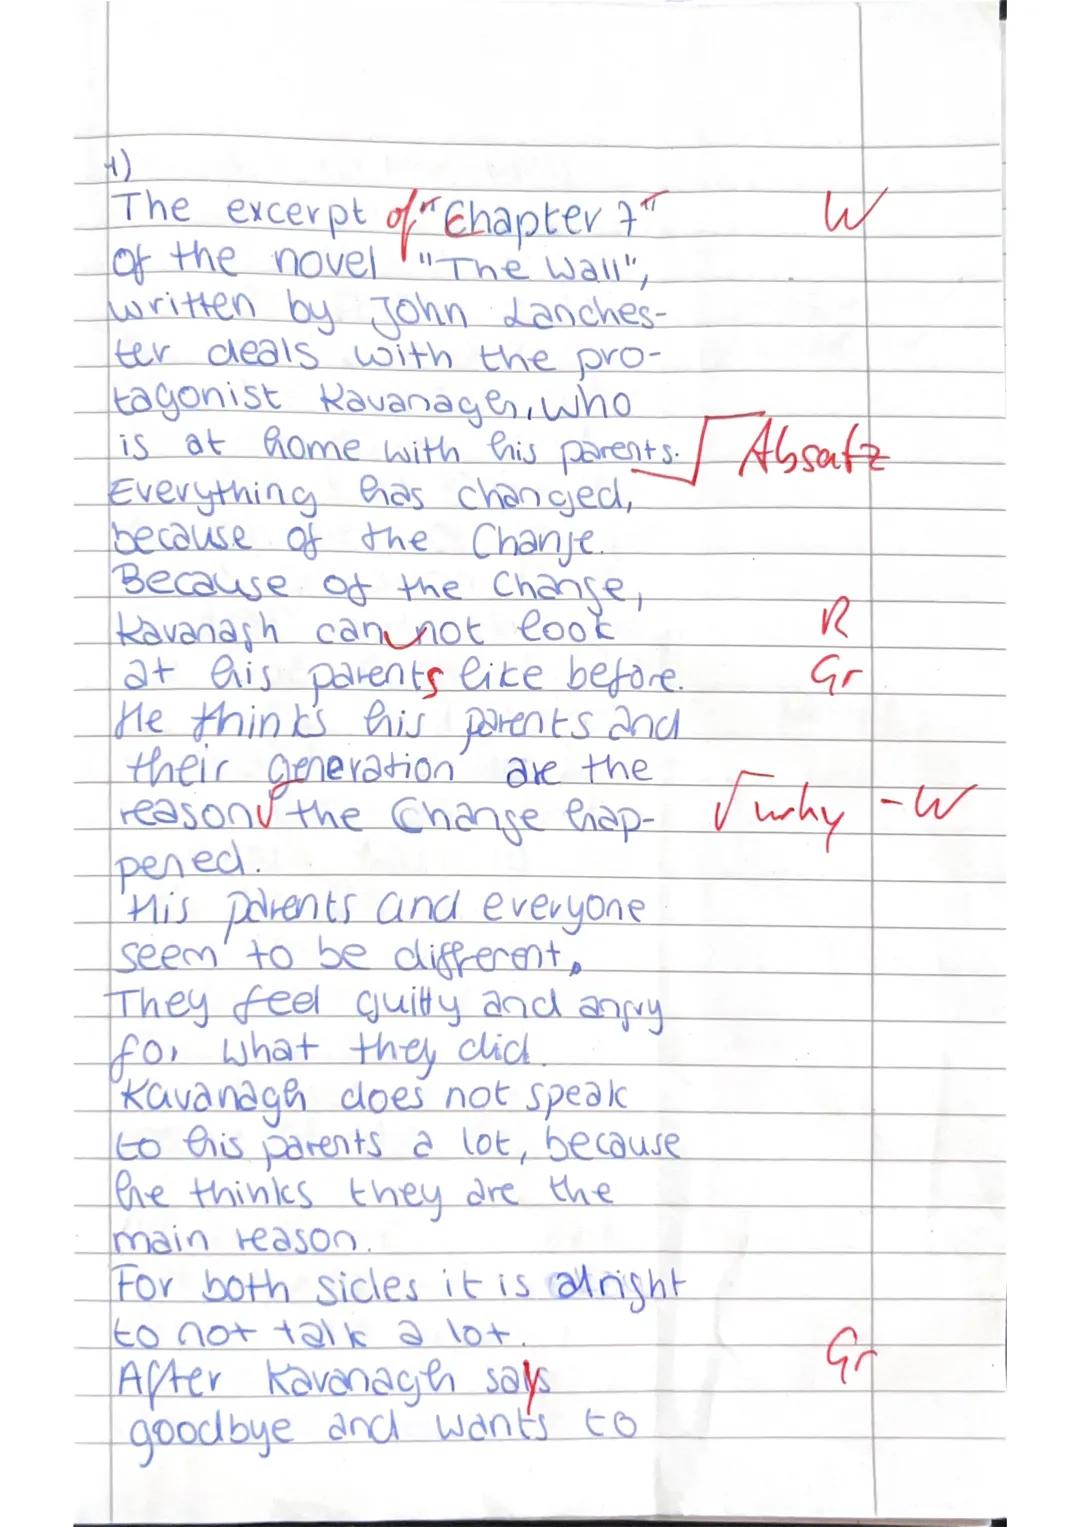 1)
The excerpt of "Chapter 7" W
of the novel "The Wall",
written by John Lanches-
ter deals with the pro-
tagonist Kavanagh, who
is at home with his parents. Absatz
Everything has changed,
because of the Change.
Because of the Change,
Kavanagh can not look R
at his parents like before. Gr
He thinks his parents and
their generation are the
reason √ the Change hap- √ why - W
pened.
His parents and everyone
seem to be different.
They feel guilty and angry
for what they did.
Kavanagh does not speak
to his parents a lot, because
he thinks they are the
main reason.
For both sides it is alright
to not talk a lot.
After Kavanagh says Gr
goodbye and wants to